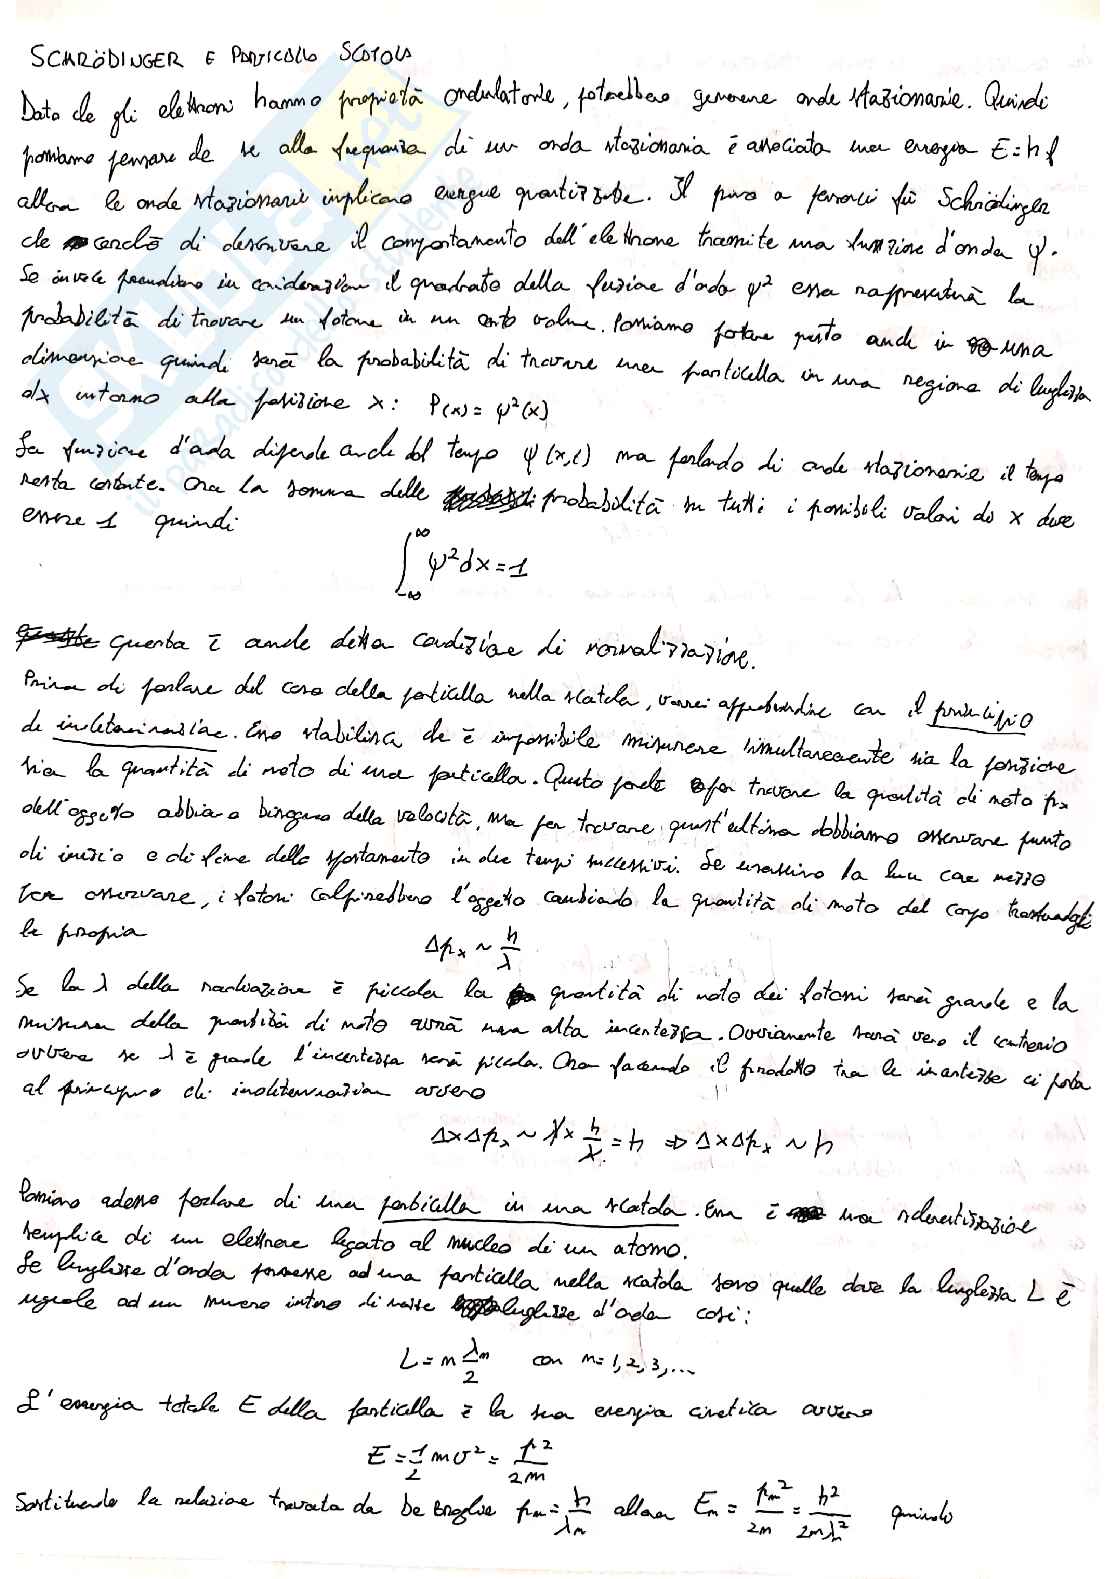 SCHRÖDINGER E PARTICELLA SCATOLA
Dato che gli elettroni hanno proprietà ondulatorie, potrebbero generare onde stazionarie. Quindi
possiamo pensare che se alla frequenza di un onda stazionaria è associata una energia E=hf
allora le onde stazionarie implicano energie quantizzate. Il primo a pensarci fù Schrödinger
che cercò di descrivere il comportamento dell'elettrone tramite una funzione d'onda ψ.
Se invece prendiamo in considerazione il quadrato della funzione d'onda ψ² essa rappresenterà la
probabilità di trovare un fotone in un certo volume. Possiamo portare questo anche in una
dimensione quindi sarà la probabilità di trovare una particella in una regione di lunghezza
dx intorno alla posizione x: P(x)= ψ²(x)
La funzione d'onda dipende anche dal tempo ψ(x,t) ma parlando di onde stazionarie il tempo
resta costante. Ora la somma delle probabilità su tutti i possibili valori di x deve
essere 1 quindi
∫_{-∞}^{∞} ψ²dx=1
questa è anche detta condizione di normalizzazione.
Prima di parlare del caso della particella nella scatola, vorrei approfondire con il principio
di indeterminazione. Esso stabilisce che è impossibile misurare simultaneamente sia la posizione
sia la quantità di moto di una particella. Questo perché per trovare la quantità di moto px
dell'oggetto abbiamo bisogno della velocità, ma per trovare quest'ultima dobbiamo osservare punto
di inizio e di fine dello spostamento in due tempi successivi. Se usassimo la luce come mezzo
per osservare, i fotoni colpirebbero l'oggetto cambiando la quantità di moto del corpo trasferendogli
la propria
Δpx ~ h/λ
Se la λ della radiazione è piccola la quantità di moto dei fotoni sarà grande e la
misura della quantità di moto avrà una alta incertezza. Ovviamente sarà vero il contrario
ovvero se λ è grande l'incertezza sarà piccola. Ora facendo il prodotto tra le incertezze ci porta
al principio di indeterminazione ovvero
ΔxΔpx ~ λ × h/λ = h ⇒ ΔxΔpx ~ h
Possiamo adesso parlare di una particella in una scatola. Essa è una schematizzazione
semplice di un elettrone legato al nucleo di un atomo.
Le lunghezze d'onda permesse ad una particella nella scatola sono quelle dove la lunghezza L è
uguale ad un numero intero di mezze lunghezze d'onda così:
L = n λn/2 con n=1,2,3,...
L'energia totale E della particella è la sua energia cinetica ovvero
E = 1/2 mv² = p²/2m
Sostituendo la relazione trovata da De Broglie pn = h/λn allora En = pn²/2m = h²/2mλn² quindi